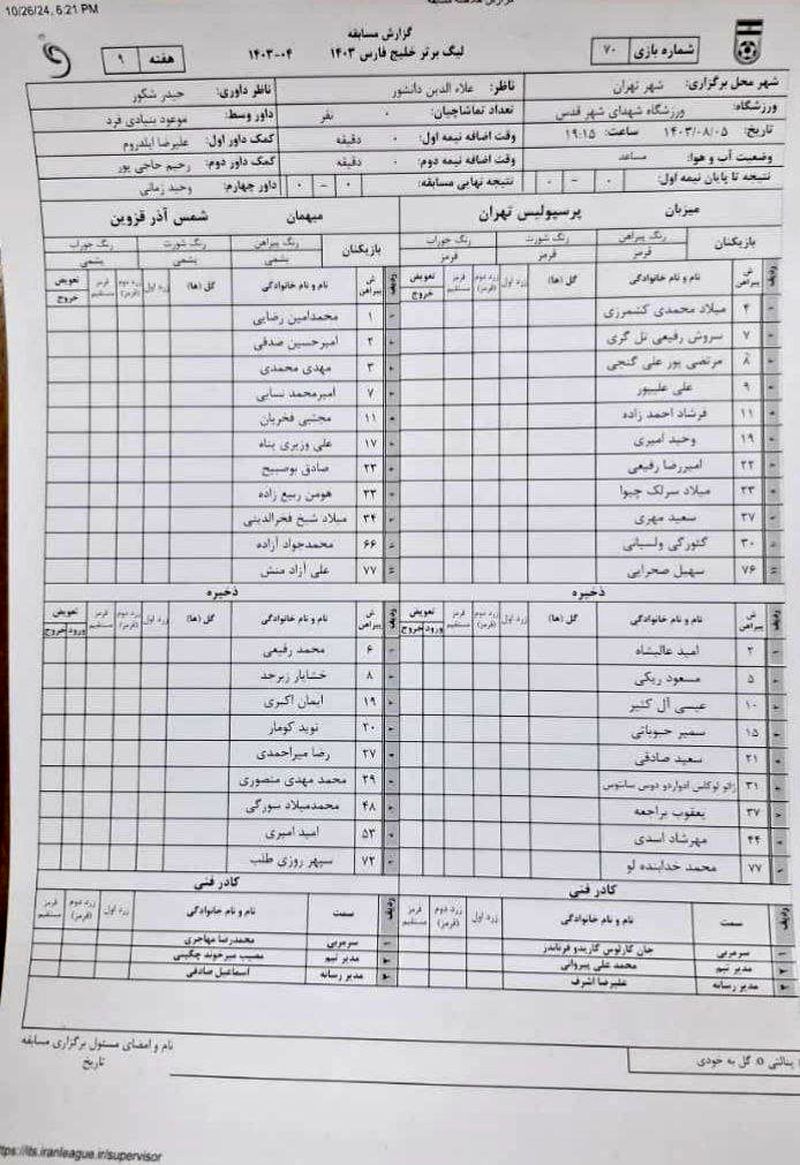 10/26/24, 6:21 PM
گزارش مسابقه
شماره بازی ۷۰
لیگ برتر خلیج فارس ۱۴۰۳ ۰۴-۱۴۰۳
هفته ۹
شهر محل برگزاری: شهر تهران
ناظر: علاء الدین دانشور
ناظر داوری: حیدر شکور
ورزشگاه: ورزشگاه شهدای شهر قدس
تعداد تماشاچیان: ۰ نفر
داور وسط: موعود بنیادی فرد
تاریخ: ۱۴۰۳/۰۸/۰۵ ساعت: ۱۹:۱۵
وقت اضافه نیمه اول: ۰ دقیقه
کمک داور اول: علیرضا ایلدروم
وضعیت آب و هوا: مساعد
وقت اضافه نیمه دوم: ۰ دقیقه
کمک داور دوم: رحیم حاجی پور
نتیجه تا پایان نیمه اول: ۰ - ۰
نتیجه نهایی مسابقه: ۰ - ۰
داور چهارم: وحید زمانی
میزبان پرسپولیس تهران
میهمان شمس آذر قزوین
بازیکنان رنگ پیراهن رنگ شورت رنگ جوراب
قرمز قرمز قرمز
بازیکنان رنگ پیراهن رنگ شورت رنگ جوراب
یشمی یشمی یشمی
ردیف ش پیراهن نام و نام خانوادگی گل (ها) زرد اول زرد دوم (قرمز) قرمز مستقیم تعویض خروج
۴ میلاد محمدی کشمرزی
۷ سروش رفیعی تل گری
۸ مرتضی پور علی گنجی
۹ علی علیپور
۱۱ فرشاد احمد زاده
۱۹ وحید امیری
۲۲ امیررضا رفیعی
۲۳ میلاد سرلک چیوا
۲۷ سعید مهری
۳۰ گئورگی ولسیانی
۷۶ سهیل صحرایی
ردیف ش پیراهن نام و نام خانوادگی گل (ها) زرد اول زرد دوم (قرمز) قرمز مستقیم تعویض خروج
۱ محمدامین رضایی
۲ امیرحسین صدقی
۳ مهدی محمدی
۷ امیرمحمد نسایی
۱۱ مجتبی فخریان
۱۷ علی وزیری پناه
۲۳ صادق بوصبیح
۳۳ هومن ربیع زاده
۳۴ میلاد شیخ فخرالدینی
۶۶ محمدجواد آزاده
۷۷ علی آزاد منش
ذخیره
ردیف ش پیراهن نام و نام خانوادگی گل (ها) زرد اول زرد دوم (قرمز) قرمز مستقیم تعویض ورود خروج
۲ امید عالیشاه
۵ مسعود ریگی
۱۰ عیسی آل کثیر
۱۵ سمیر حبوباتی
۲۱ سعید صادقی
۳۱ ژائو لوکاس ادواردو دوس سانتوس
۳۷ یعقوب براجعه
۴۴ مهرشاد اسدی
۷۷ محمد خدابنده لو
ذخیره
ردیف ش پیراهن نام و نام خانوادگی گل (ها) زرد اول زرد دوم (قرمز) قرمز مستقیم تعویض ورود خروج
۶ محمد رفیعی
۸ خشایار زبرجد
۱۹ ایمان اکبری
۲۰ نوید کومار
۲۷ رضا میراحمدی
۲۹ محمد مهدی منصوری
۴۸ محمدمیلاد سورگی
۵۳ امید امیری
۷۲ سپهر روزی طلب
کادر فنی
ردیف سمت نام و نام خانوادگی زرد اول زرد دوم (قرمز) قرمز مستقیم
۱ سرمربی خان کارلوس گاریدو فرناندز
۲ مدیر تیم محمد علی پیروانی
۳ مدیر رسانه علیرضا اشرف
کادر فنی
ردیف سمت نام و نام خانوادگی زرد اول زرد دوم (قرمز) قرمز مستقیم
۱ سرمربی محمدرضا مهاجری
۲ مدیر تیم مصیب میرخوند چگینی
۳ مدیر رسانه اسماعیل صادقی
نام و امضای مسئول برگزاری مسابقه
تاریخ
پنالتی O: گل به خودی
ttps://lts.iranleague.ir/supervisor